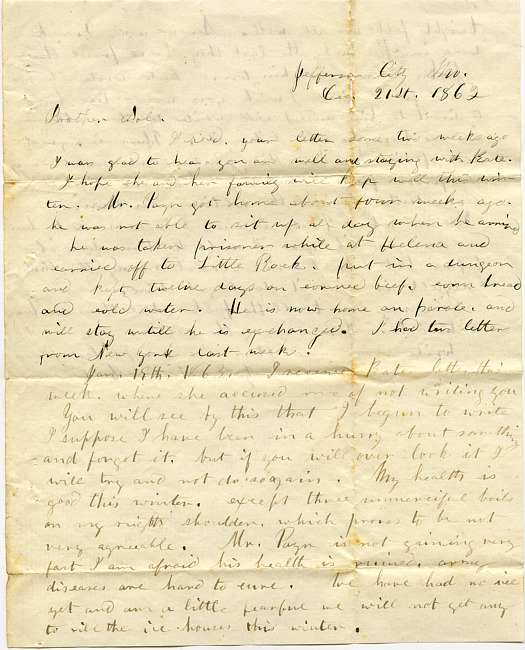 Jefferson City Mo.
21st. 1862
Brother
I rec'd. your letter some two weeks ago
I was glad to hear you are well and staying with Kate.
I hope she and her family will keep well this win-
ter. Mr. Payn got home about four weeks ago.
he was not able to sit up all day when he arrived
he was taken prisoner while at Helena and
carried off to Little Rock. put in a dungeon
and kept twelve days on corned beef. corn bread
and cold water. He is now home on parole. and
will stay untill he is exchanged. I had two letters
from New York last week.
Jan. 19th. 1863. I received Kate letter this
week. where she accused me of not writing you
You will see by this that I begun to write
I suppose I have been in a hurry about something
and forgot it. but if you will over look it I
will try and not do so again. My health is
good this winter. except three unmerciful boils
on my right shoulder. which proves to be not
very agreeable. Mr. Payn is not gaining very
fast I am afraid his health is ruined. army
diseases are hard to cure. We have had no ice
yet and am a little fearful we will not get any
to fill the ice houses this winter.